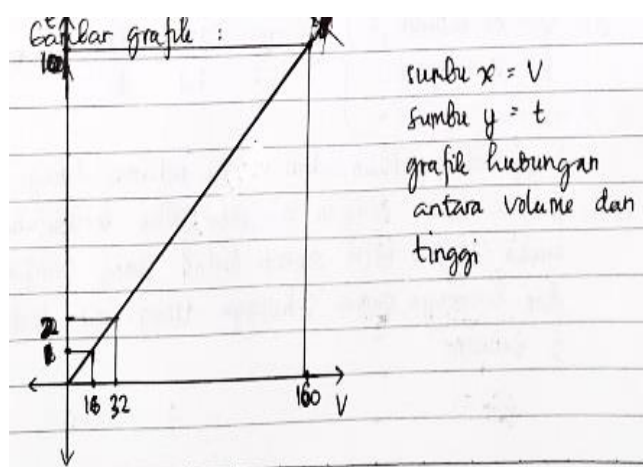 t
Gambar grafik :
10
sumbu x = V
sumbu y = t
grafik hubungan
antara volume dan
tinggi
2
1
16 32 160 V